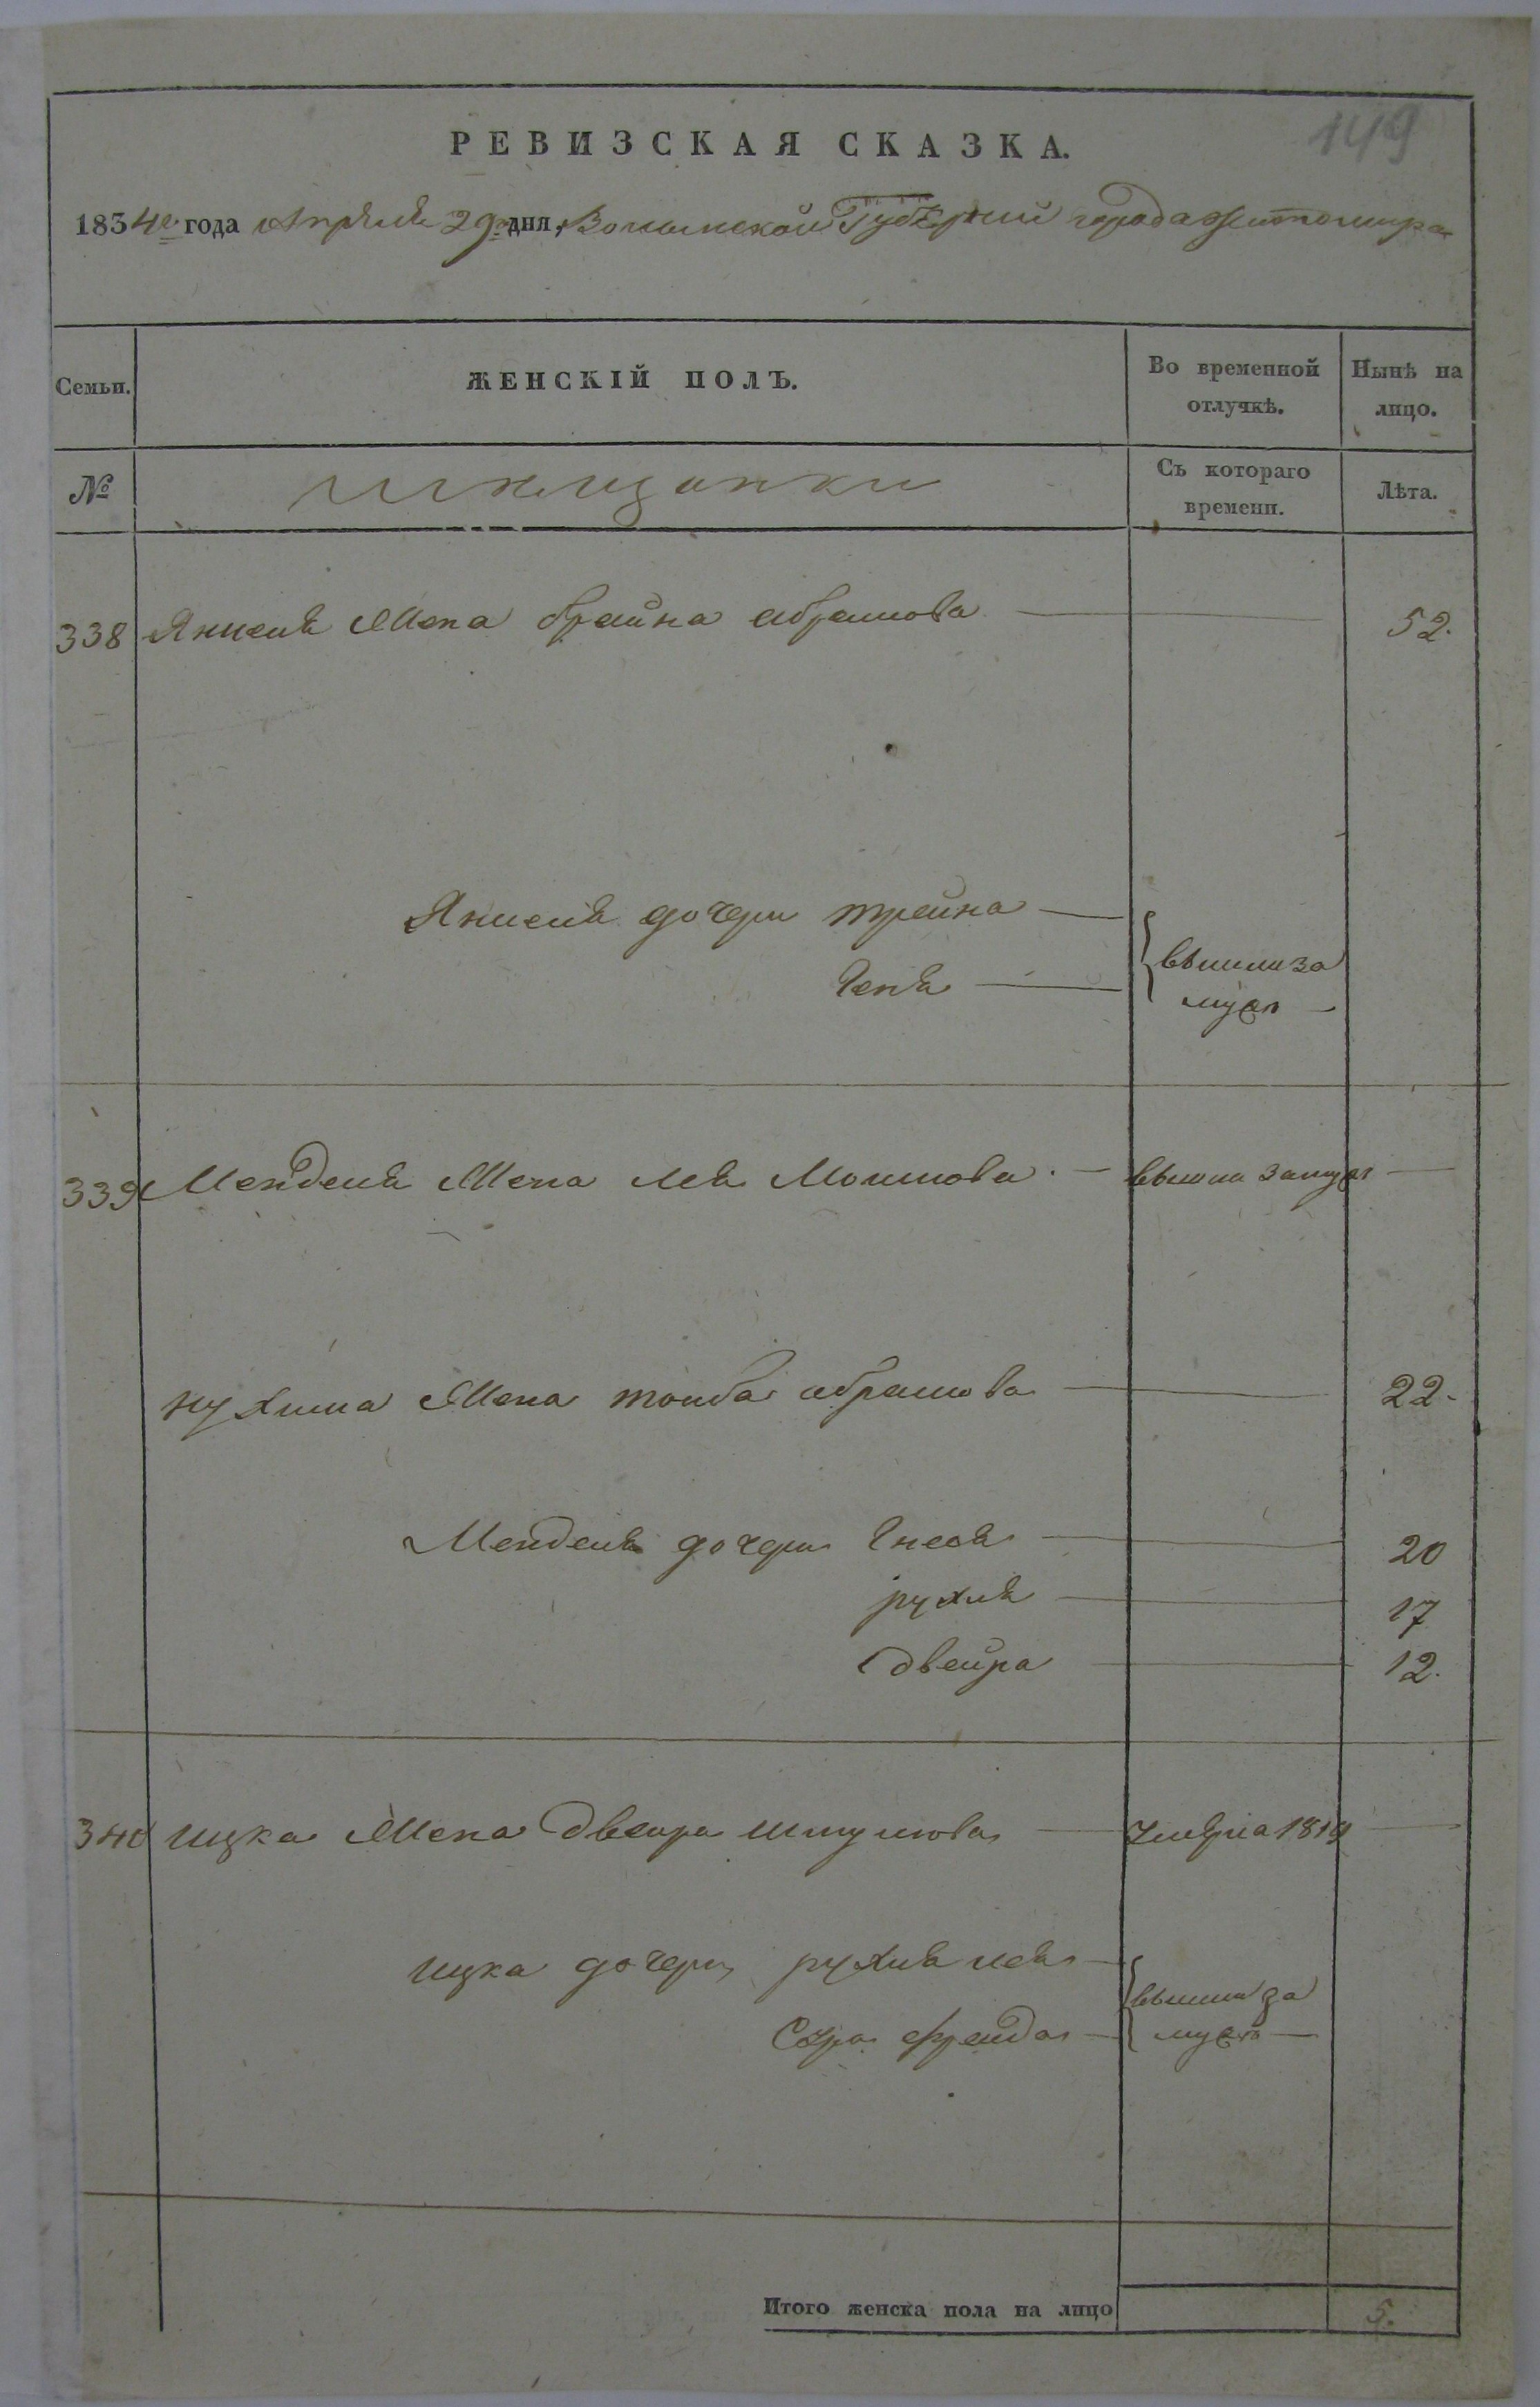 149
РЕВИЗСКАЯ СКАЗКА.
1834го года Апреля 29 дня, Волынской Губернии города Житомира
Семьи. ЖЕНСКІЙ ПОЛЪ. Во временной отлучкѣ. Нынѣ на лицо.
№ Мещанки Съ котораго времени. Лѣта.
338 Янкеля Жена брайна абрамова 52.
Янкеля дочери трейна
Геня
вышли за
мужъ
339 Менделя Жена Лея Мошкова вышла замужъ
Нухима Жена тойба абрамова 22.
Менделя дочери Гнеся 20
рухля 17
двейра 12.
340 ицка Жена Двейра Шмулова умерла 1819
ицка дочери рухля лея
Сура фрейда
вышли за
мужъ
Итого женска пола на лицо 5.